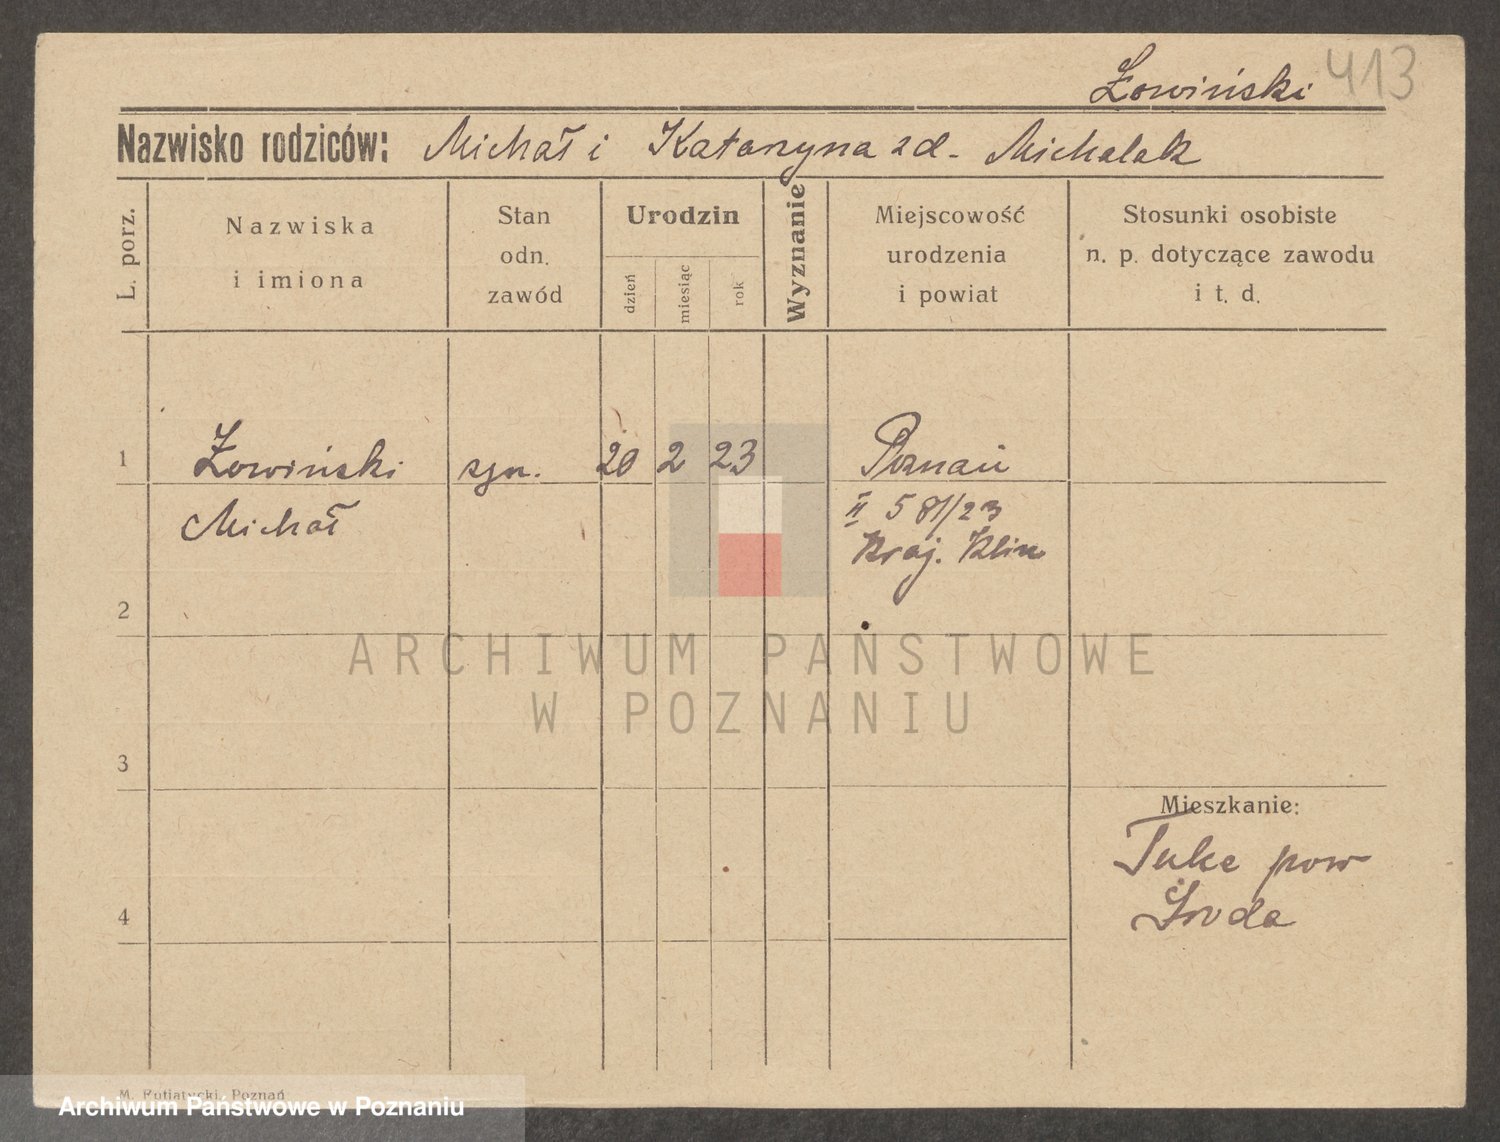 Łowiński 413
Nazwisko rodziców: Michał i Katarzyna zd. Michalak
L. porz.
Nazwiska
i imiona
Stan
odn.
zawód
Urodzin
dzień
miesiąc
rok
Wyznanie
Miejscowość
urodzenia
i powiat
Stosunki osobiste
n. p. dotyczące zawodu
i t. d.
1 Łowiński syn. 20 2 23 Poznań
Michał II 581/23
Kraj. Klin
2
ARCHIWUM PAŃSTWOWE
W POZNANIU
3
Mieszkanie:
Tulce pow
Środa
4
M. Putiatycki, Poznań
Archiwum Państwowe w Poznaniu